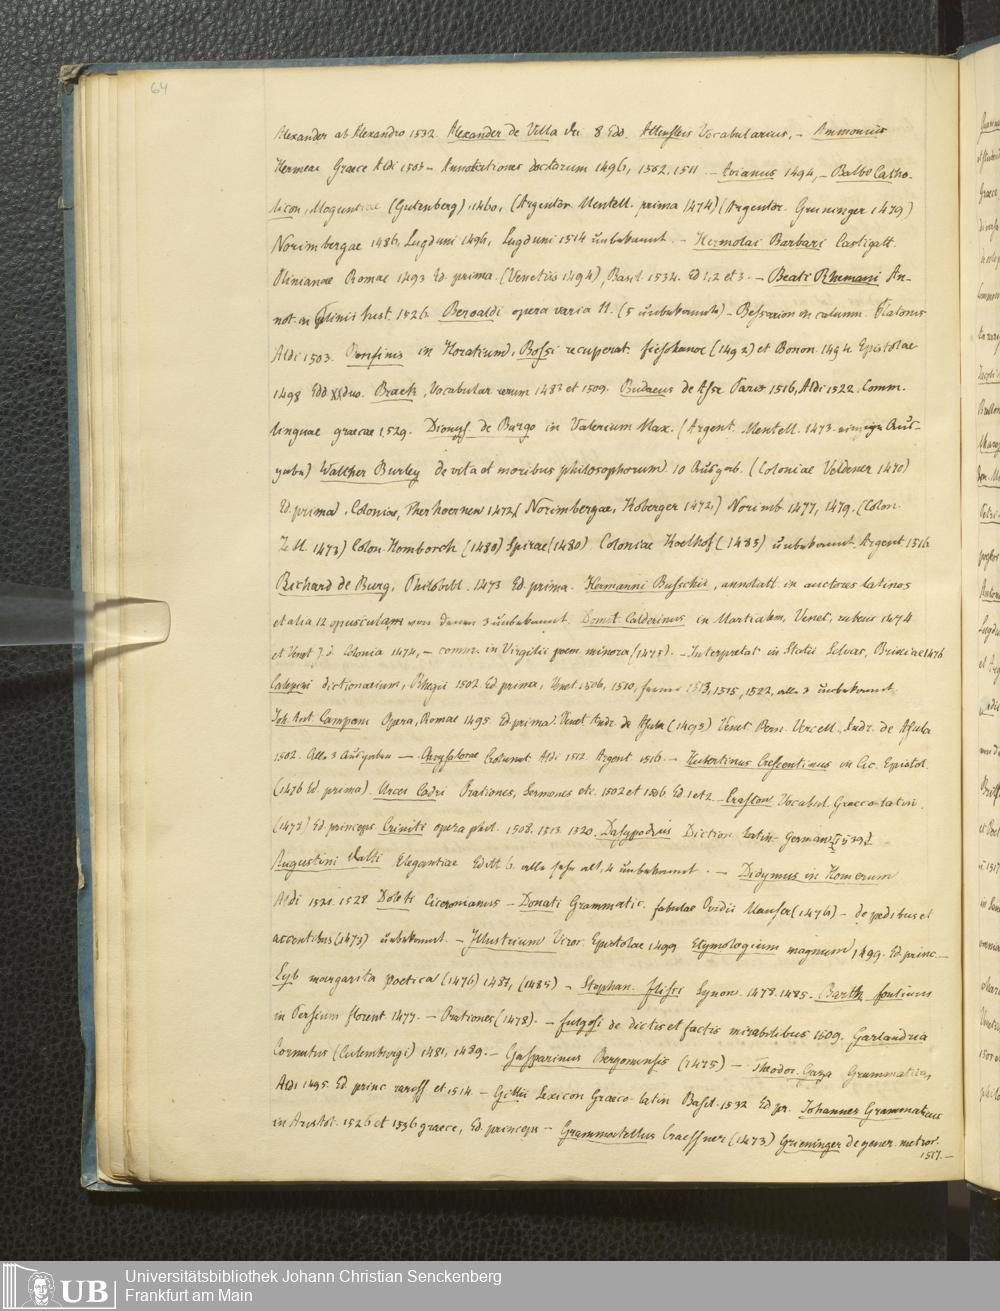 64
Alexander ab Alexandro 1532. Alexander de Villa dei 8 Edd. Altensteis Vocabularius, – Ammonius
Hermeae Graece Aldi 1503 – Annotationes doctorum 1496, 1502. 1511 – Avianus 1494, – Balbo Catho-
licon, Moguntiae (Gutenberg) 1460, (Argentor. Mentell. prima 1474) (Argentor. Gruninger 1479)
Norimbergae 1486, Lugduni 1496, Lugduni 1514 unbekannt. – Hermolai Barbari Castigatt.
Plinianae Romae 1493 Ed. prima. (Venetiis 1494), Basil. 1534. Ed 1, 2 et 3. – Beati Rhenani An-
not. in Plinii hist. 1526. Beroaldi opera varia 11. (5 unbekannte) – Bessarion in calumn. Platonis
Aldi 1503. Bonfinis in Horatium, Bossi recuperat. Fiesolanae (1492) et Bonon. 1494. Epistolae
1498 Edd duo. Brack, Vocabular rerum 1483 et 1509. Budaeus de Asse Paris 1516, Aldi 1522. Comm.
linguae graecae 1529. Dionys. de Burgo in Valerium Max. (Argent. Mentell. 1473. einzige Aus-
gabe) Walther Burley de vita et moribus philosophorum 10 Ausgab. (Coloniae Veldener 1470)
Ed. prima, Coloniae, Therhoernen 1472 (Norimbergae, Koberger 1472) Norimb 1477, 1479. (Colon.
Z. U. 1473) Colon. Homborch (1480) Spirae (1480) Coloniae Koelhof (1485) unbekannt. Argent 1516
Richard de Burg, Philobibl. 1473 Ed. prima. Hermanni Buschii, annotatt. in auctores latinos
et alia 12 opuscula, von denen 3 unbekannt. Domit. Calderinus in Martialem, Venet. rubeus 1474
et Venet J. d. Colonia 1474, – comm. in Virgilii poem minora (1475). – Interpretat. in Statii Selvas, Brixiae 1476
Calepini dictionarium, Rhegii 1502. Ed. prima, Venet. 1506, 1510, 1513, 1515, 1522, alle 3 unbekannt.
Joh. Ant. Campani Opera, Romae 1495. Ed prima. Venet Andr. de Asula (1495) Venet Bern. Vercell. Andr. de Asula
1502. Alle 3 Ausgaben – Chrysolorae Erotemat. Aldi 1512. Argent. 1516. – Hubertinus Crescentinas in Cic. Epistol.
(1476 Ed. prima). Orationes, Sermones etc. 1502 et 1506 Ed. 1 et 2. Craston Vocabul. Graeco-latin.
(1478) Ed. princeps. Criniti opera phil. 1508. 1513. 1520. Dasypodius Diction latin-German
Augustini Dathi Elegantiae Edtt 6. alle sehr alt, 4 unbekannt. – Didymus in Homerum
Aldi 1521. 1528 Doleti Ciceronianus – Donati Grammatic. fabulae Ovidii Mansfer (1476) – de pedibus et
accentibus (1473) unbekannt. – Illustrium Viror. Epistolae 1499 Etymologicum magnum 1499. Ed. princ. –
Eyb margarita poetica (1476) 1487, (1485) – Stephan. Flisci Synon. 1478. 1485. Barth. fontius
in Persium florent 1477. – Orationes (1478). – Fulgosi de dictis et factis mirabilibus 1509. Garlandria
Cornutus (Culemburgi) 1481, 1489. – Gasparinus Bergomensis (1475) – Theodor. Gaza Grammatica,
Aldi 1495. Ed princ rariss et 1514 – Gillii Lexicon Graeco-latin Basil. 1532 Ed pr. Johannes Grammaticus
in Aristot. 1526 et 1536 graece, Ed. princeps – Grammatellus Craessner (1473) Grieninger de gener. metror.
1517. –
Universitätsbibliothek Johann Christian Senckenberg
Frankfurt am Main
UB